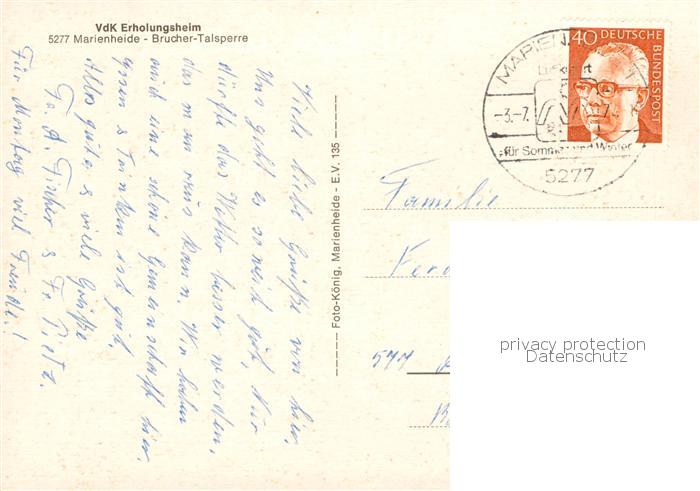 VdK Erholungsheim
5277 Marienheide - Brucher-Talsperre
Viele liebe Grüße von hier.
Uns geht es soweit gut, Nur
dürfte das Wetter besser werden,
das man raus kann. Wir haben
auch eine schöne Gemeinschaft hier,
Essen & Trinken ist gut.
Alles gute & viele Grüße
Fr. A. Fischer & Fr. Pietz.
Für Montag viel Freude!
Foto-König, Marienheide - E.V. 135
MARIEN
Luftkurort
-3.-7.
für Sommer und Winter
5277
40 DEUTSCHE
BUNDESPOST
Familie
Ferd
577
privacy protection
Datenschutz